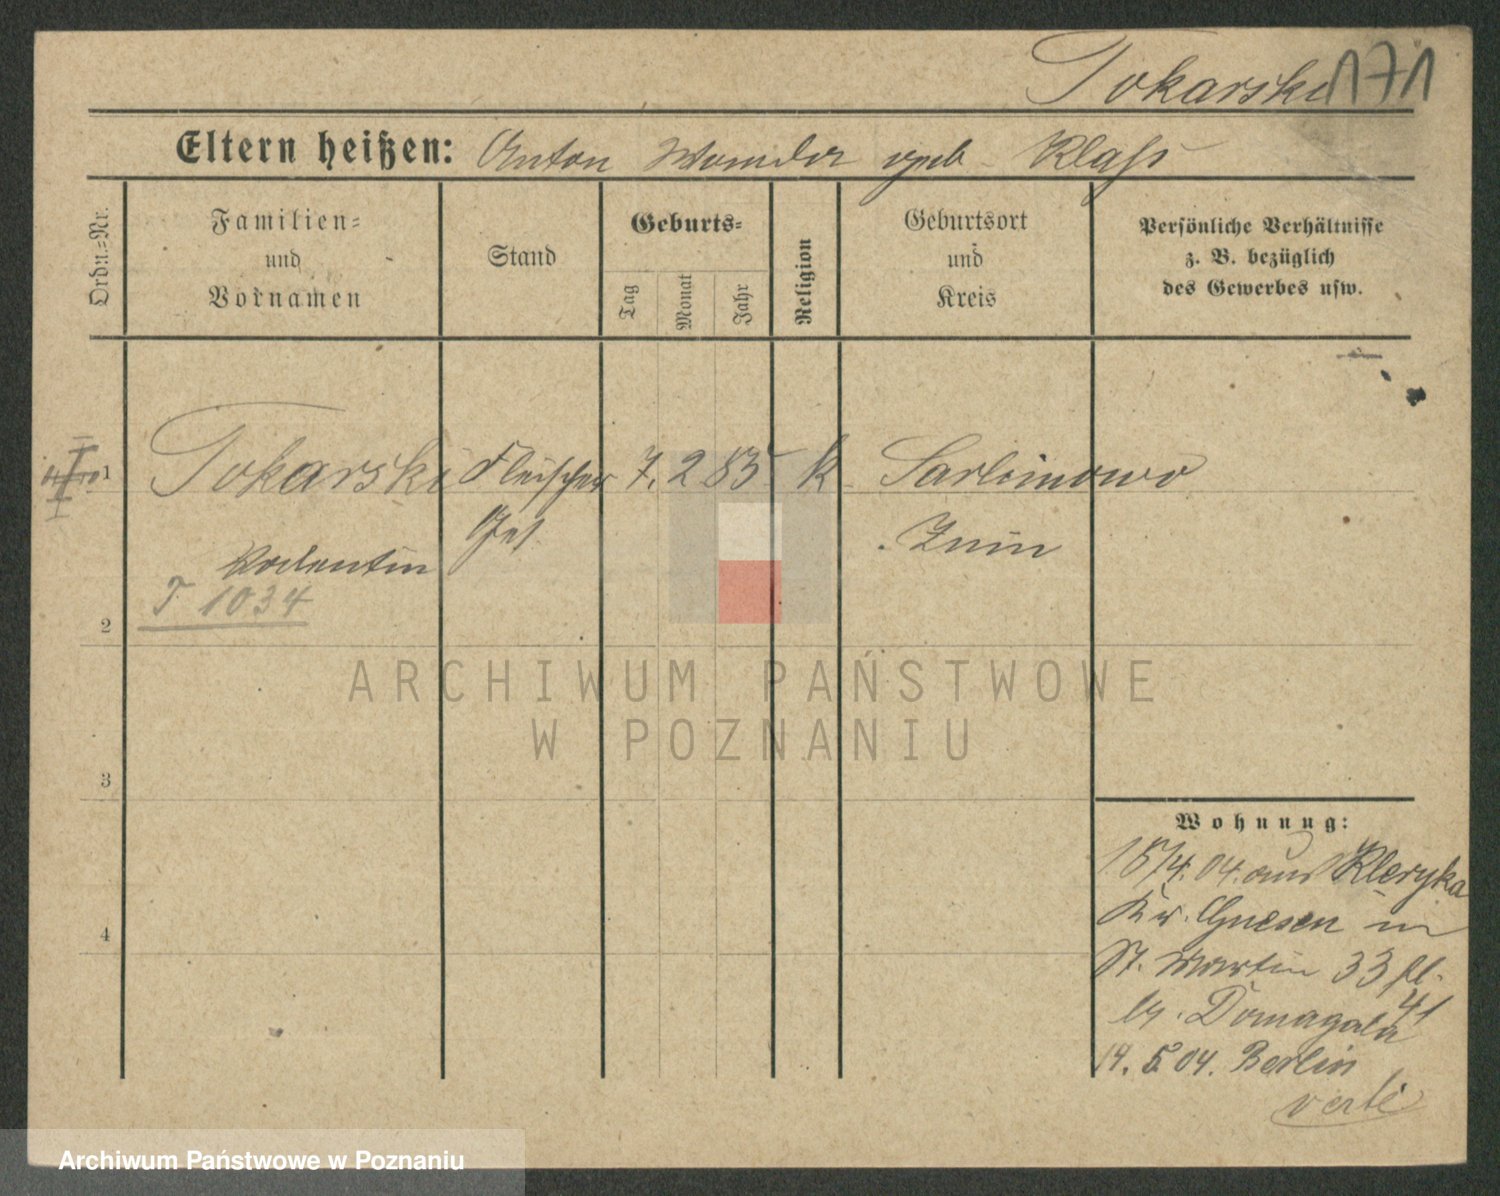 Tokarski 171
Eltern heißen: Anton Wanda geb. Klaß
Ordn.=Nr.
Familien=
und
Vornamen
Stand
Geburts=
Tag
Monat
Jahr
Religion
Geburtsort
und
Kreis
Persönliche Verhältnisse
z. B. bezüglich
des Gewerbes usw.
1
Tokarski Fleischer 7. 2 85 k. Sarbinowo
Ges. Znin
Valentin
T 1034
2
ARCHIWUM PAŃSTWOWE
W POZNANIU
3
4
Wohnung:
15/4. 04. aus Kleryka
Kr. Gnesen in
St. Martin 33
b. Domagala
19. 5. 04. Berlin
Archiwum Państwowe w Poznaniu